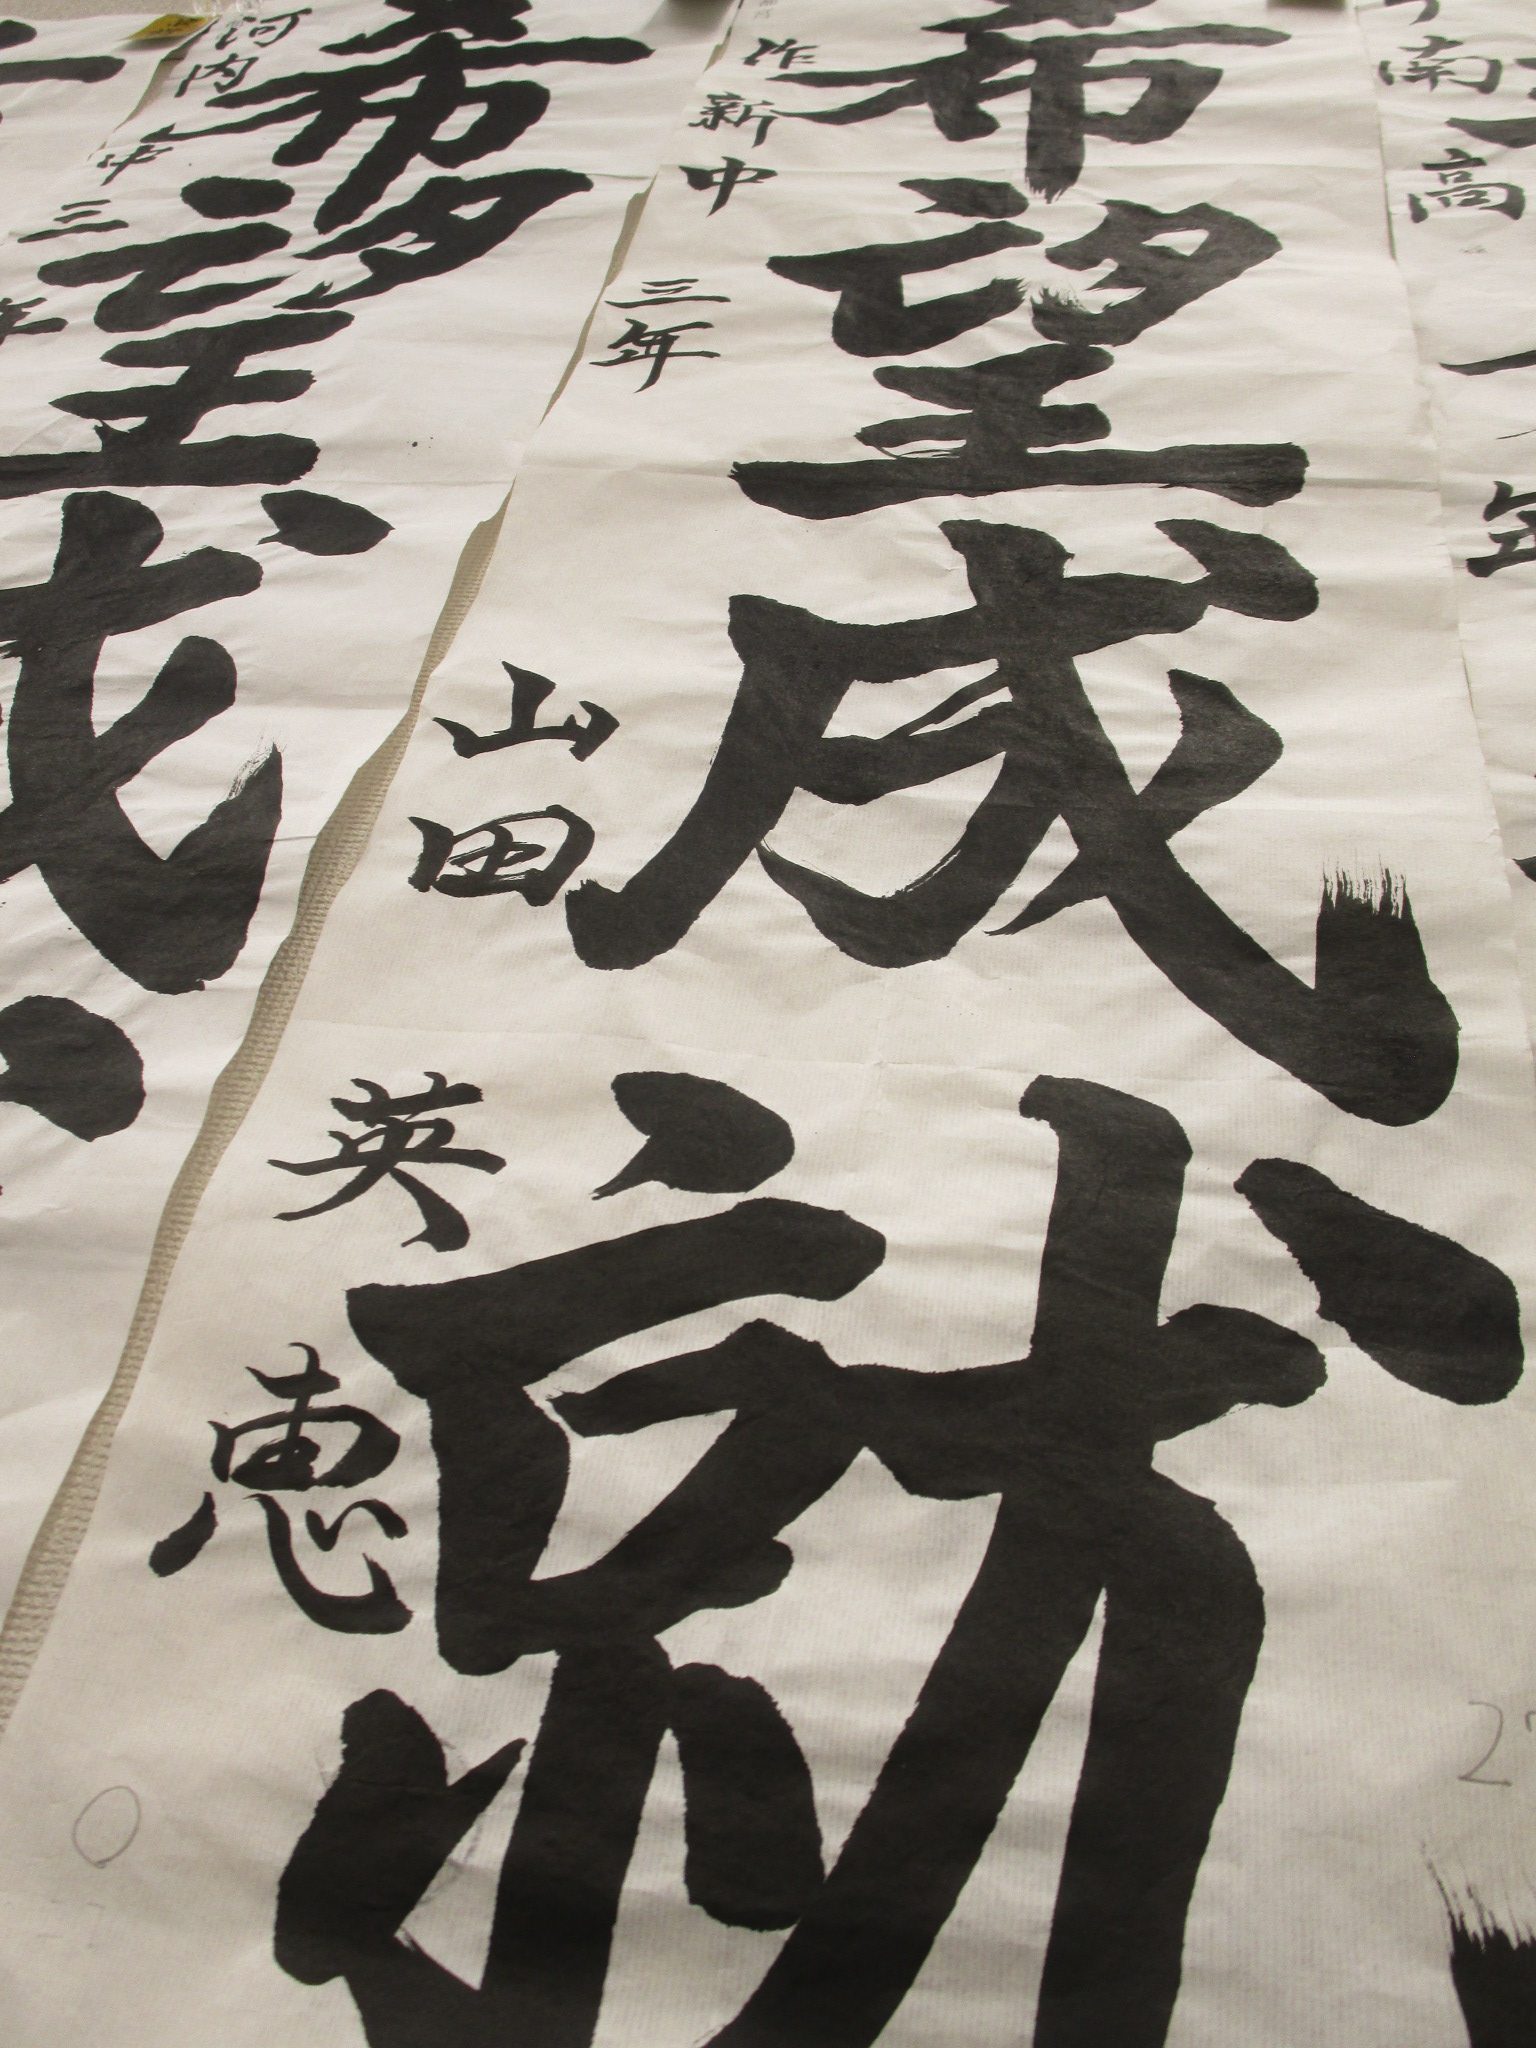 南高
年
希望成就
作新中
三年
山田
英恵
希望成
河内
中三
年